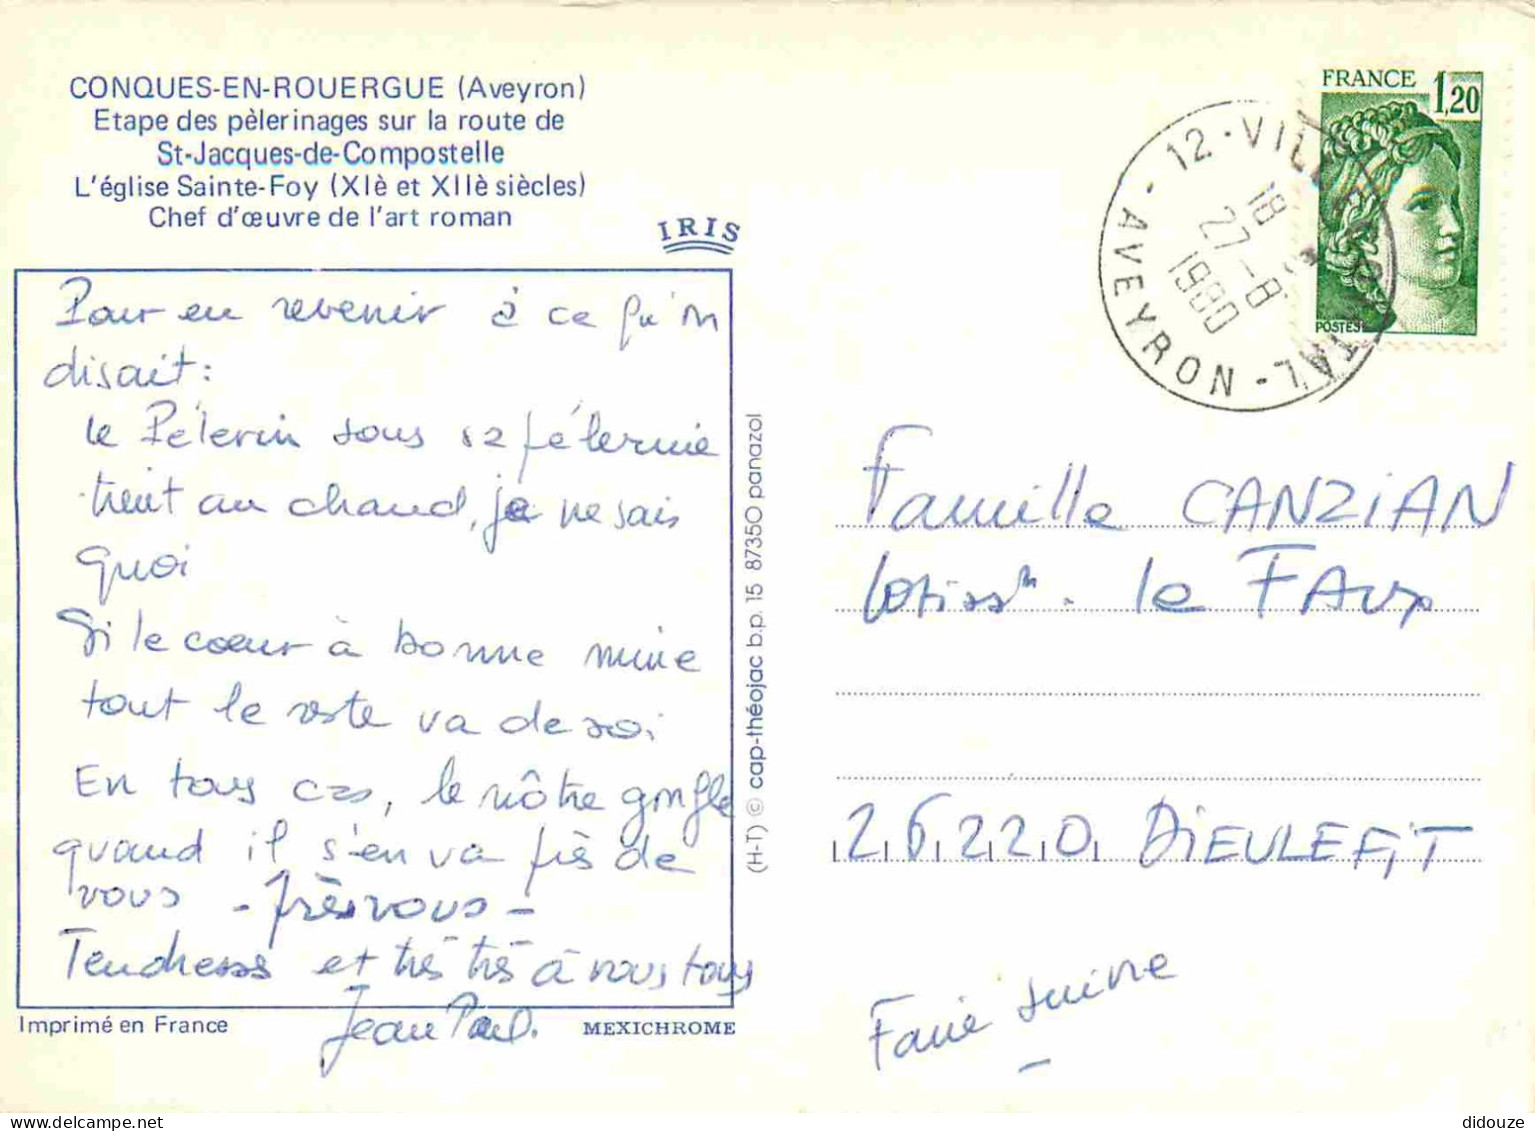 CONQUES-EN-ROUERGUE (Aveyron)
Etape des pèlerinages sur la route de
St-Jacques-de-Compostelle
L'église Sainte-Foy (XIè et XIIè siècles)
Chef d'œuvre de l'art roman
IRIS
Pour en revenir à ce qu'on
disait:
le Pélerin sous sa pélerine
tient au chaud, je ne sais
quoi
Si le coeur à bonne mine
tout le reste va de soi
En tous cas, le nôtre gonfle
quand il s'en va près de
vous - très vous -
Tendresse et très très à vous tous
Jean Paul.
Imprimé en France
MEXICHROME
(H-T) © cap-théojac b.p. 15 87350 panazol
FRANCE 1,20
POSTES
12 - VIL
AL - AVEYRON -
18
27-8
1980
Famille CANZIAN
lotisst. le FAux
26220 DiEULEFiT
Faire suivre
didouze